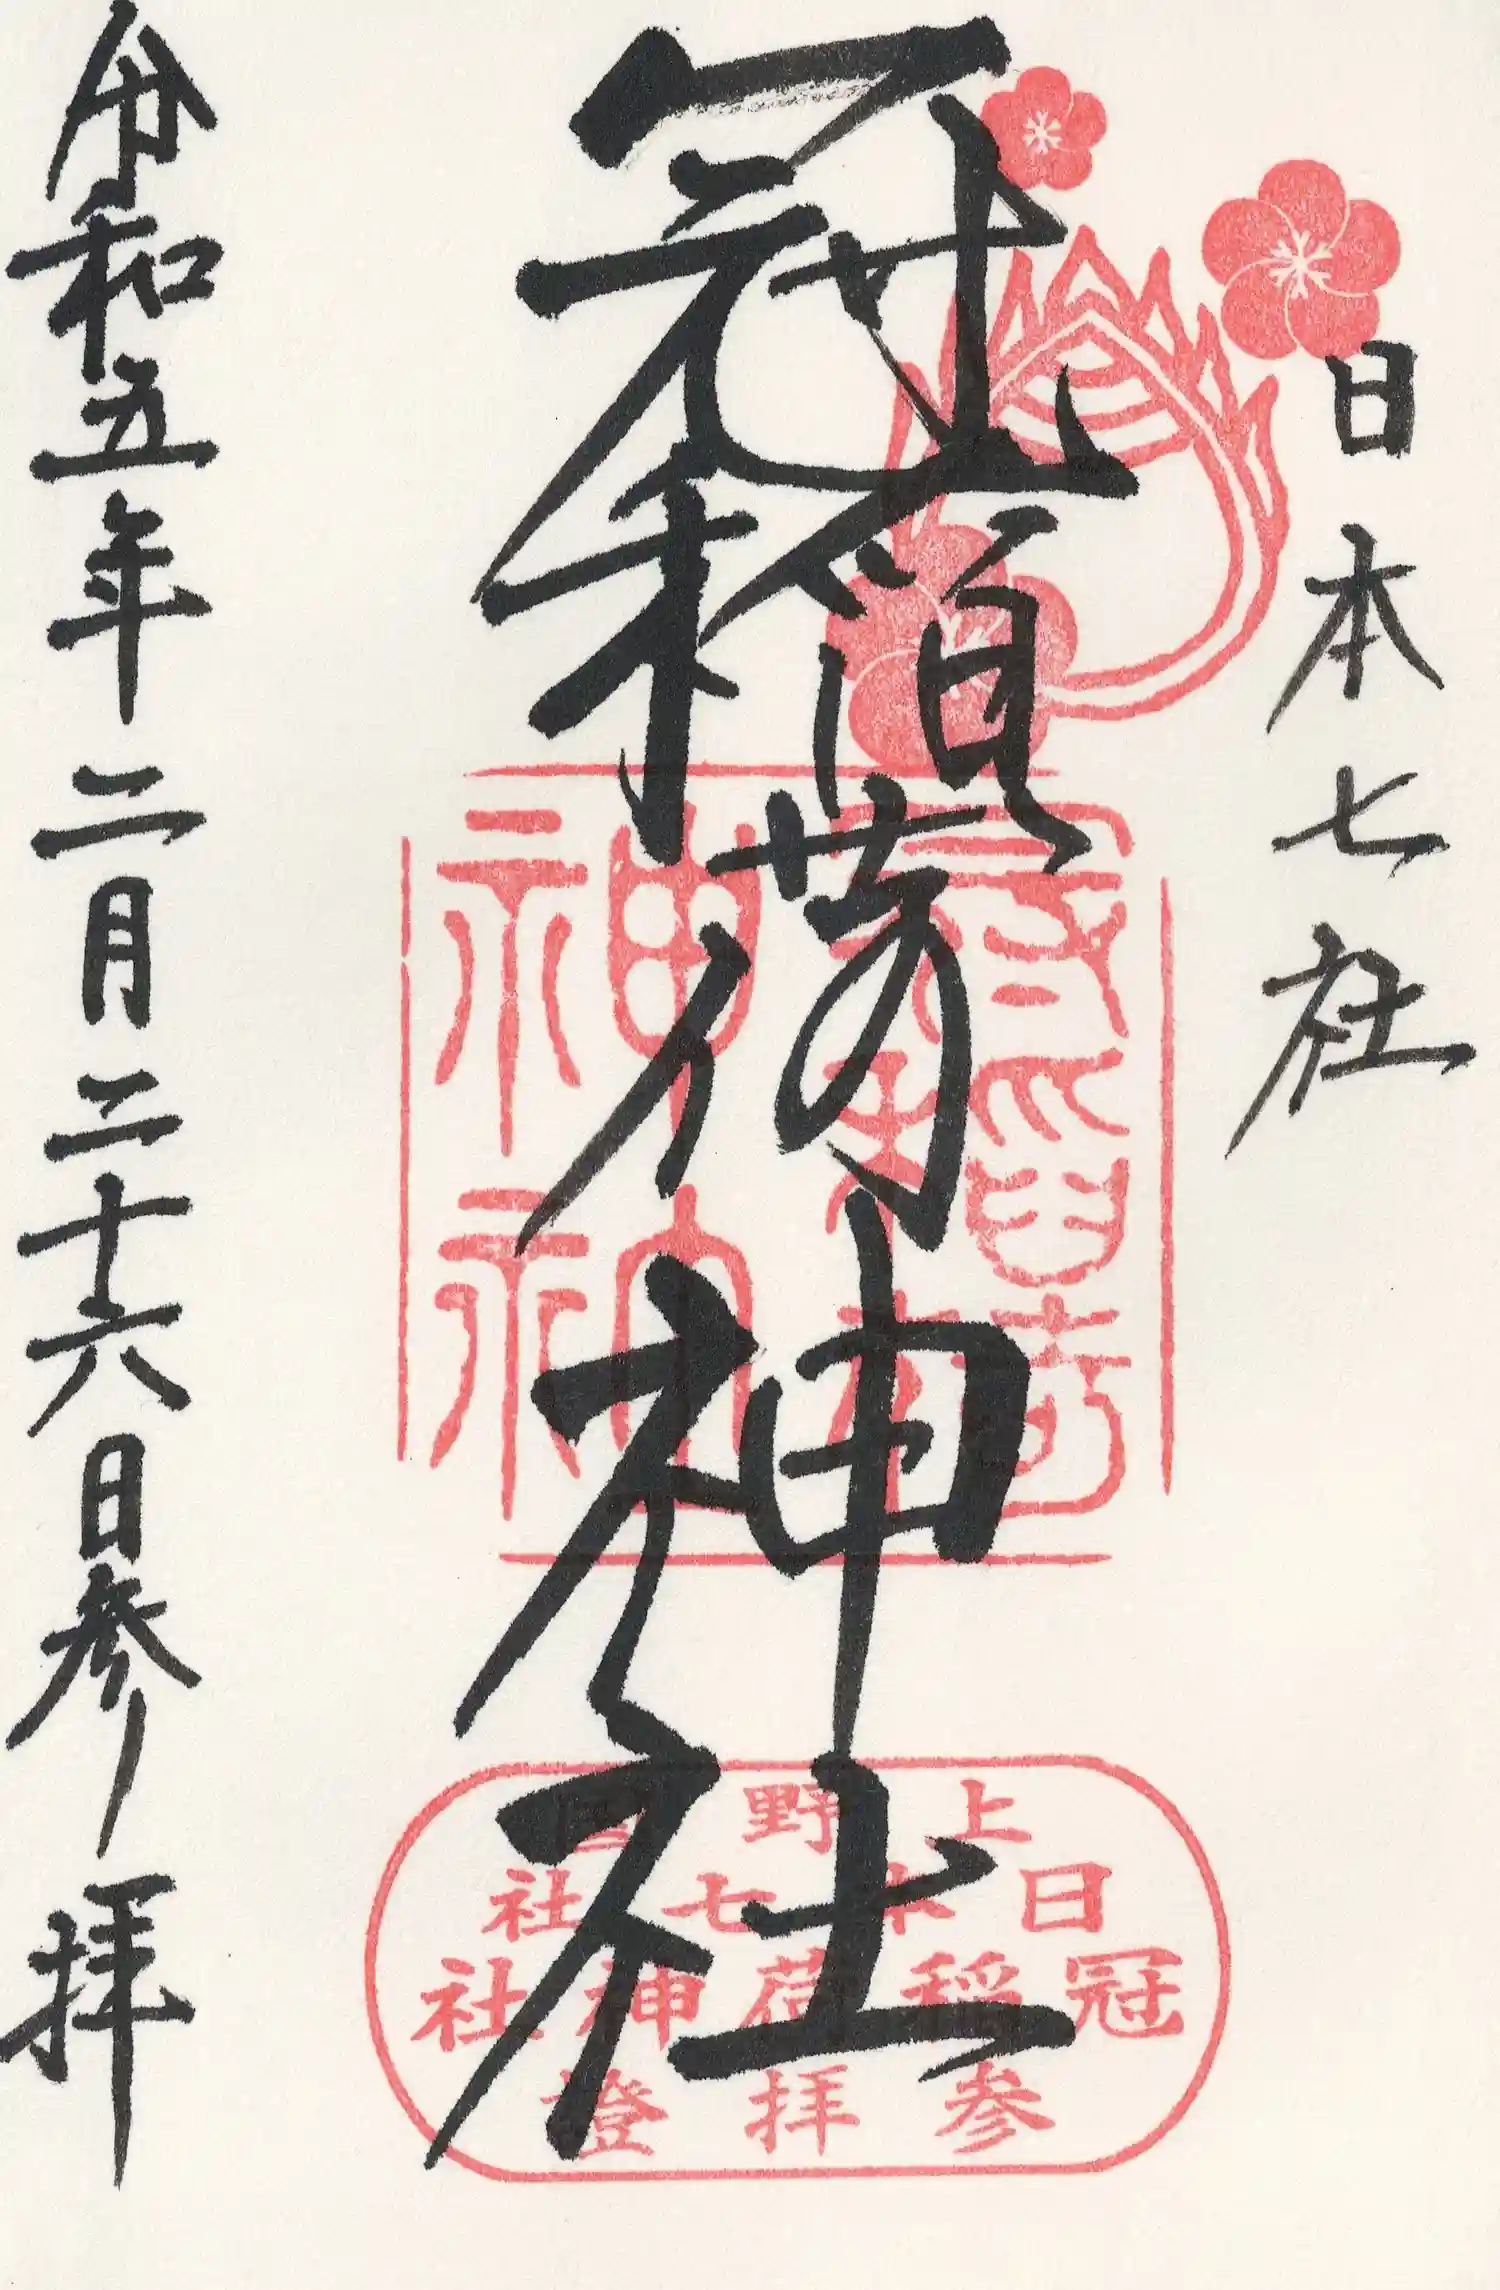 日本七社
冠稲荷神社
令和五年二月二十六日参拝
上野国
日本七社
冠稲荷神社
参拝證